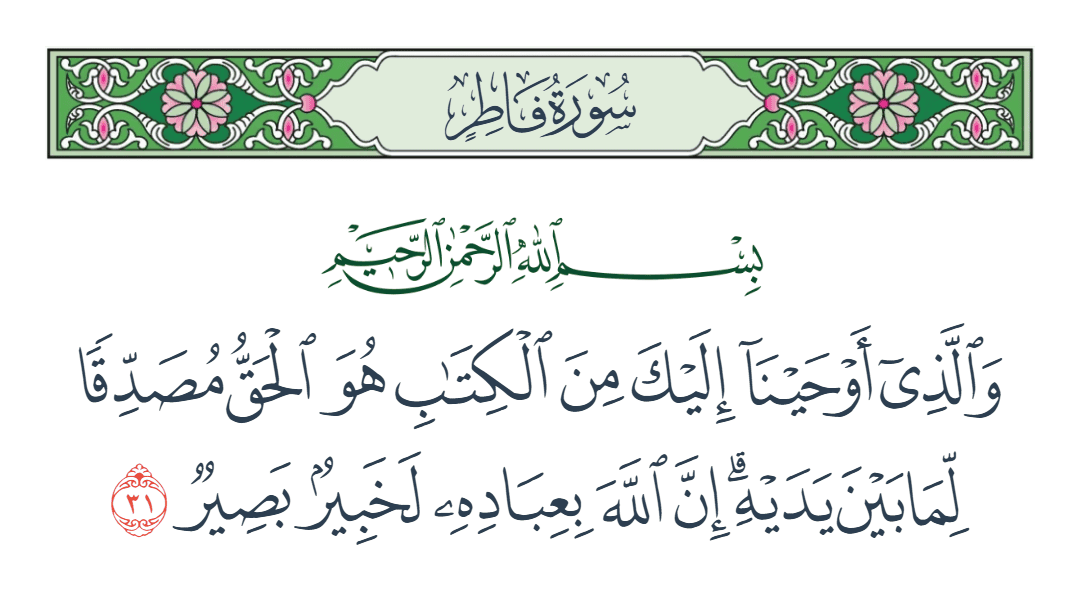 سُورَةُ فَاطِرٍ
بِسْمِ ٱللَّهِ ٱلرَّحْمَٰنِ ٱلرَّحِيمِ
وَٱلَّذِىٓ أَوْحَيْنَآ إِلَيْكَ مِنَ ٱلْكِتَٰبِ هُوَ ٱلْحَقُّ مُصَدِّقًا
لِّمَا بَيْنَ يَدَيْهِ ۗ إِنَّ ٱللَّهَ بِعِبَادِهِۦ لَخَبِيرٌۢ بَصِيرٌ ٣١